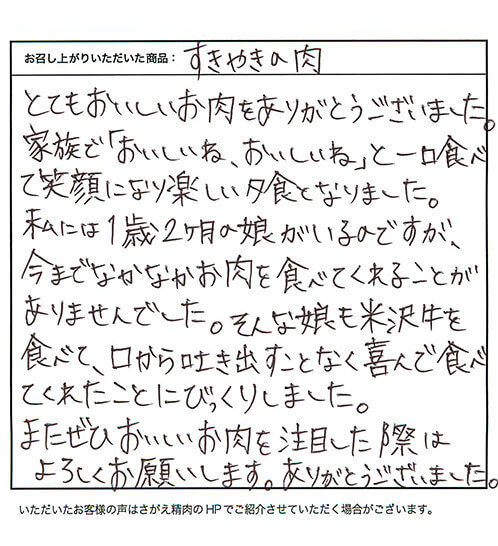 お召し上がりいただいた商品： すきやきの肉
とてもおいしいお肉をありがとうございました。
家族で「おいしいね、おいしいね」と一口食べ
て笑顔になり楽しい夕食となりました。
私には1歳2ヶ月の娘がいるのですが、
今までなかなかお肉を食べてくれることが
ありませんでした。そんな娘も米沢牛を
食べて、口から吐き出すことなく喜んで食べ
てくれたことにびっくりしました。
またぜひおいしいお肉を注目した際は
よろしくお願いします。ありがとうございました。
いただいたお客様の声はさがえ精肉のHPでご紹介させていただく場合がございます。